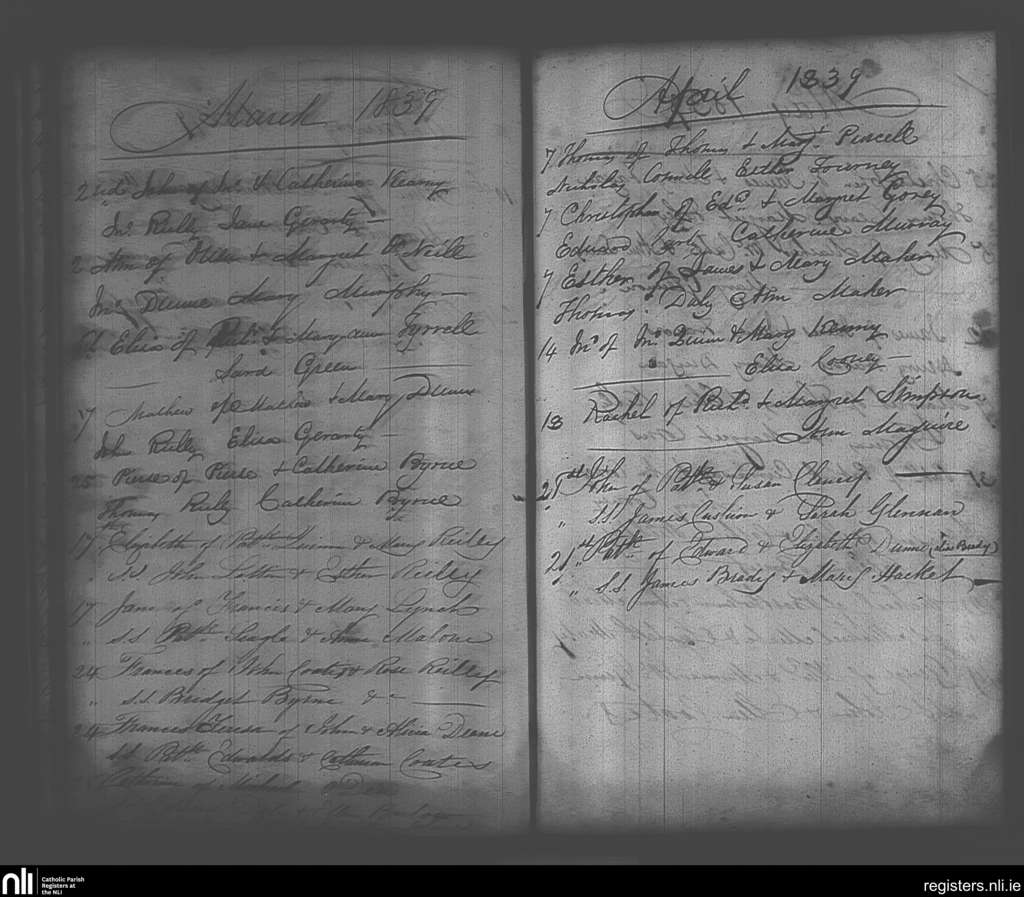 March 1839
2nd John of Jno. & Catherine Kearny
Jno. Reilly Jane Geranty —
2 Ann of & Margret O'Neill
Jno. Dunne Mary Murphy —
Eliza of Richd. & Maryann Tyrrell
Sard Green
17 Mathew of Mathew & Mary Dunne
John Reilly Eliza Geranty —
25 Pierse of Pierse & Catherine Byrne
Thomas Reilly Catherine Byrne
17 Elizabeth of Patk. Quinn & Mary Reilley
" SS John & Esther Reilley
17 Jane of Francis & Mary Lynch
" S.S Patk. Seagle & Anne Malone
24 Frances of John Coates & Rose Reilley
" S.S. Bridget Byrne &c
24 Frances Teresa of John & Alicia Deane
SS Patk. Edwalds & Catherine Coates
of Michael
April 1839
7 Thomas of Thomas & Margt. Purcell
Nicholas Connell & Esther Fourney
7 Christopher of Edwd. & Margret Gorey
Edward Catherine Murray
7 Esther of James & Mary Maher
Thomas Daly Ann Maher
14 Jno. of Jno. Quinn & Mary Kenny
Eliza Cooney —
18 Rachel of Richd. & Margret Simpson
Ann Maguire
21st John of Patk. & Susan Clancy.
" S.S. James Cushion & Sarah Glennan
21st Patk. of Edward & Elizabeth Dunne (alias Brady)
" S.S. James Brady & Mary Hacket —
nli
Catholic Parish
Registers at
the NLI
registers.nli.ie